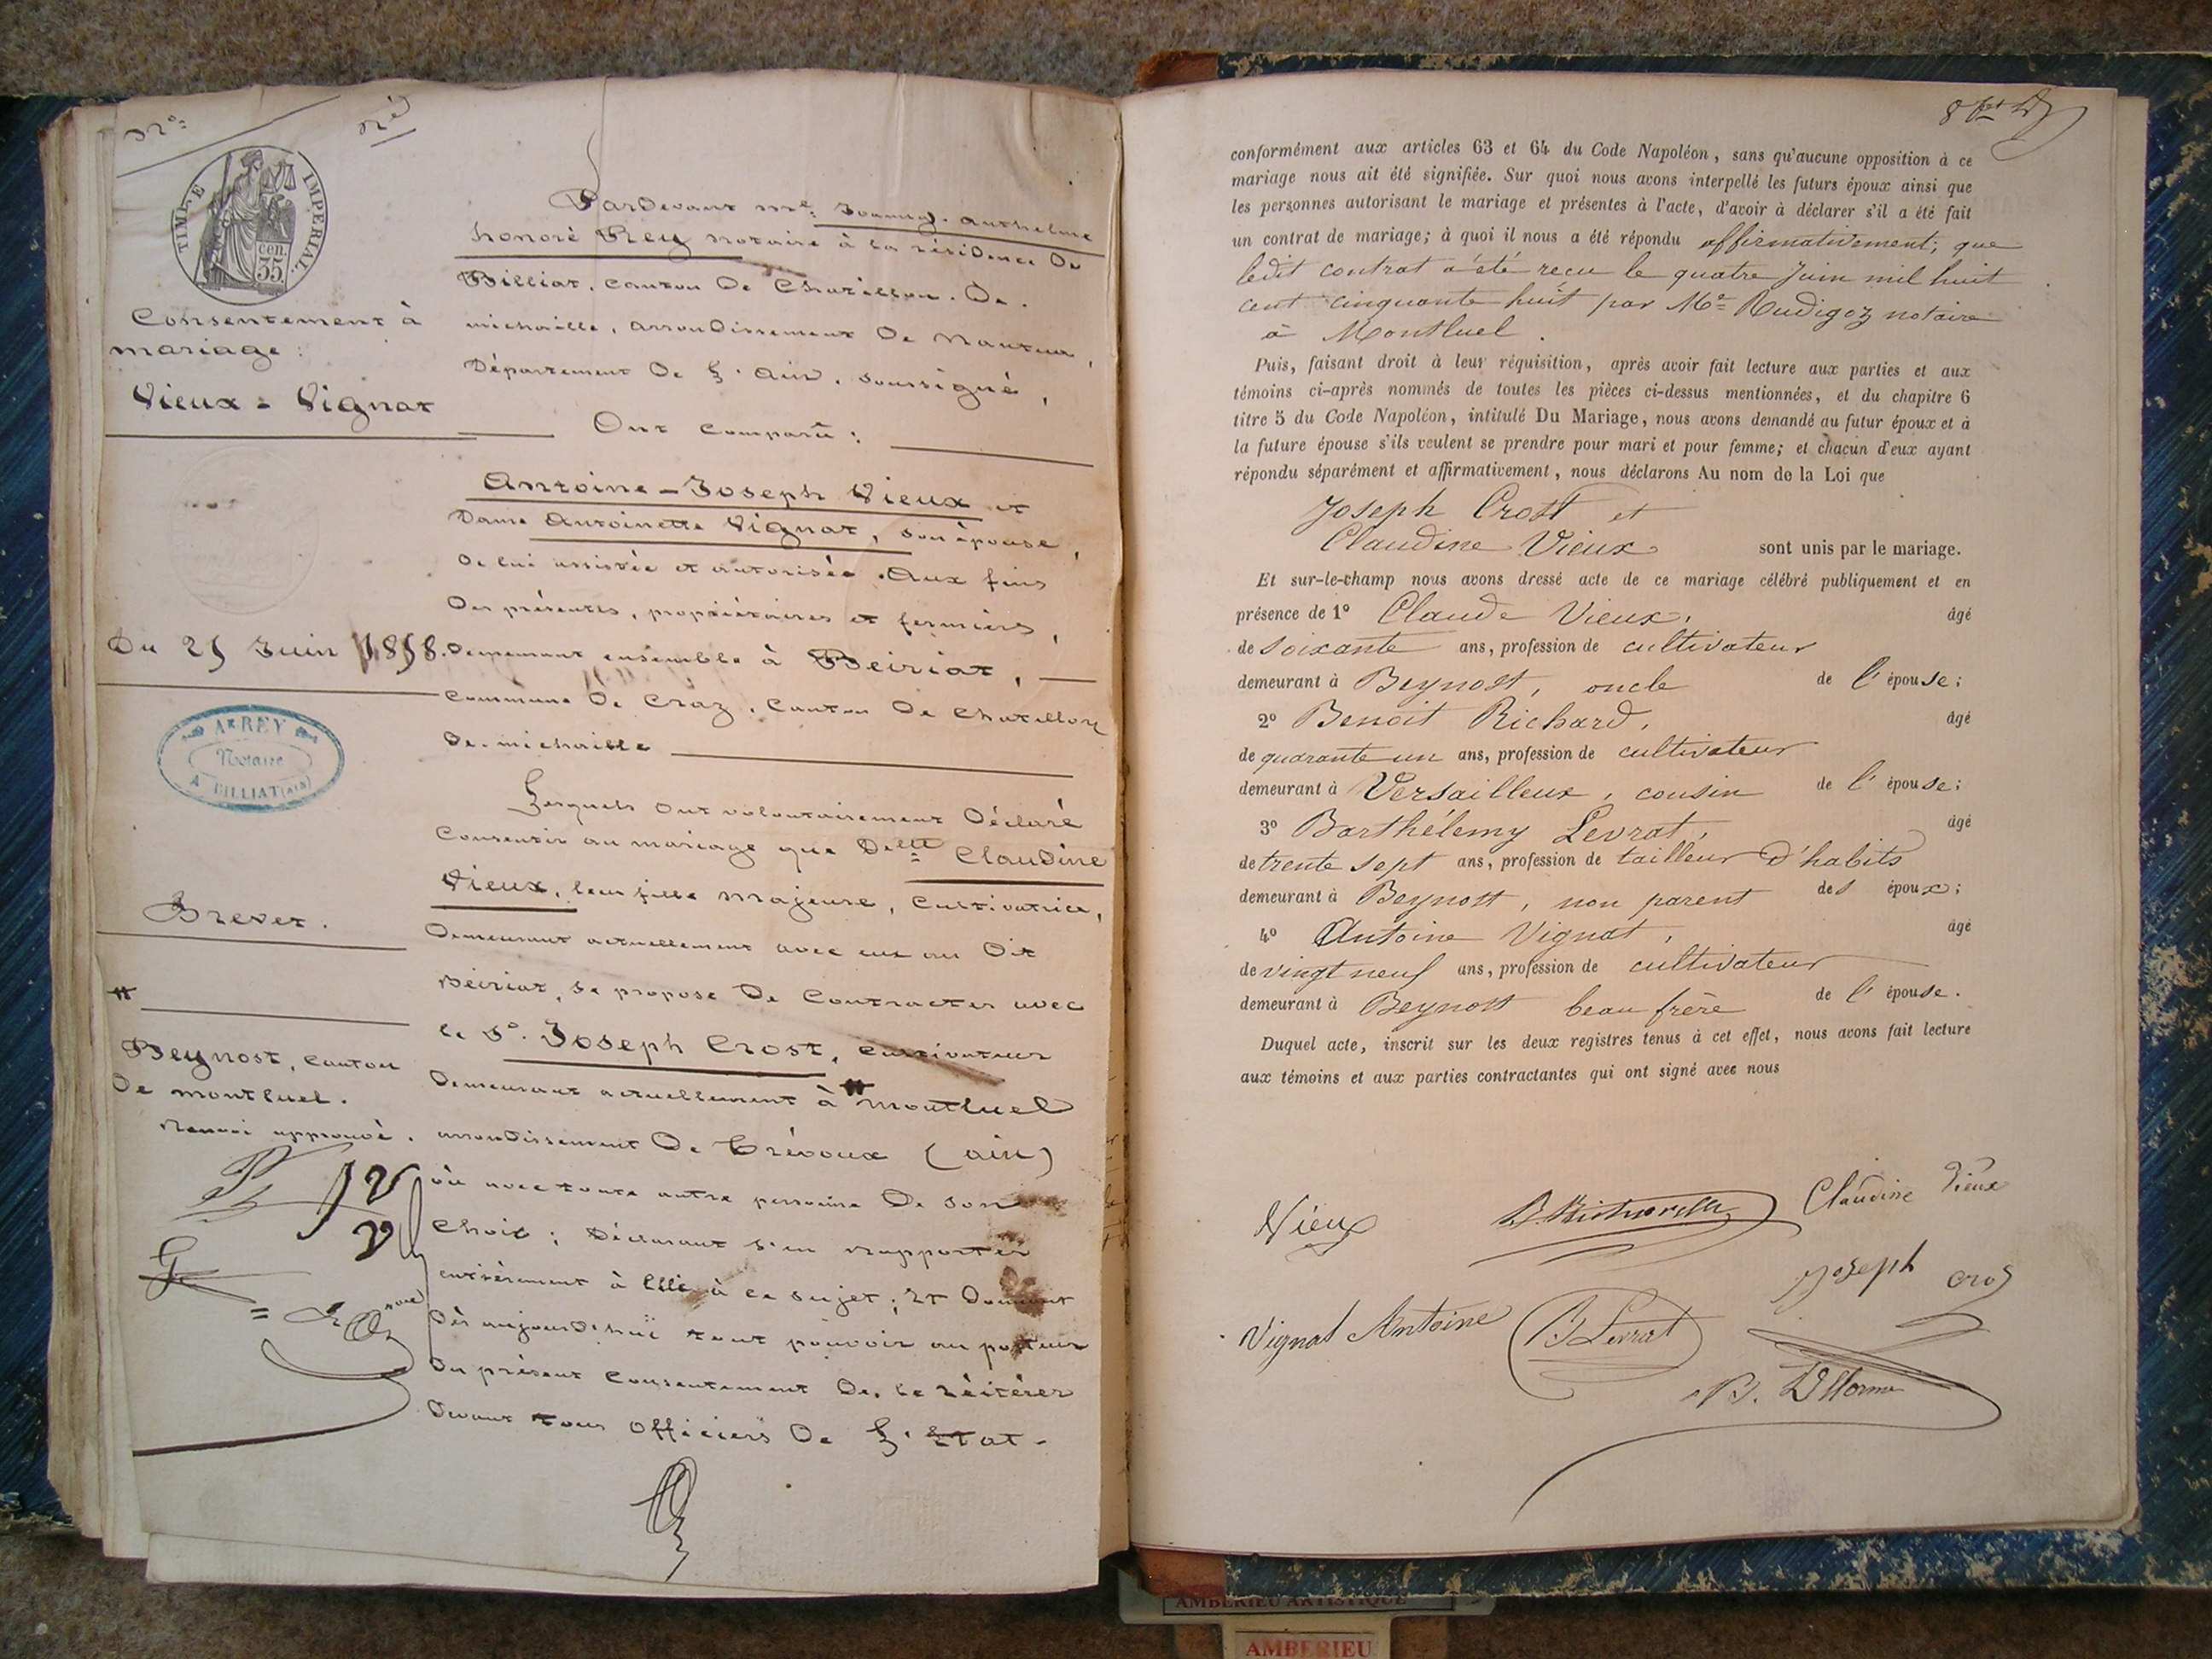 N°:
TIMBRE IMPERIAL.
cen
35.
Consentement à
mariage:
Vieux = Vignat
Du 25 Juin 1858.
A.REY
Notaire
A BILLIAT (AIN)
Brevet.
Beynost, canton
De montluel.
Renvoi approuvé.
Pardevant me: Joanny-Anthelme
honoré Rey notaire à la résidence De
Billiat, canton De Chatillon-De-
michaille, arrondissement De Nantua,
Département De L'Ain, soussigné,
Ont comparu:
Antoine-Joseph Vieux et
Dame Antoinette Vignat, son épouse,
De lui assistée et autorisée Aux fins
Des présentes, propriétaires et fermiers,
Demeurant ensemble à Beiriat,
commune De Craz, canton De Chatillon
De-michaille
Lesquels ont volontairement Déclaré
consentir au mariage que Delle Claudine
Vieux, leur fille majeure, cultivatrice,
Demeurant actuellement avec eux au Dit
Beiriat, se propose De Contracter avec
le Sr. Joseph Crost, cultivateur
Demeurant actuellement à montluel
arrondissement De Trévoux (ain)
où avec toute autre personne De son
choix; Déclarant s'en rapporter
entièrement à Elle à ce sujet; Et Donnant
Dès aujourd'hui tout pouvoir au porteur
Du présent consentement De le réitérer
Devant tous officiers De L'Etat-
8
conformément aux articles 63 et 64 du Code Napoléon, sans qu'aucune opposition à ce
mariage nous ait été signifiée. Sur quoi nous avons interpellé les futurs époux ainsi que
les personnes autorisant le mariage et présentes à l'acte, d'avoir à déclarer s'il a été fait
un contrat de mariage; à quoi il nous a été répondu affirmativement; que
ledit contrat a été reçu le quatre Juin mil huit
cent cinquante huit par Me Rudigoz notaire
à Montluel.
Puis, faisant droit à leur réquisition, après avoir fait lecture aux parties et aux
témoins ci-après nommés de toutes les pièces ci-dessus mentionnées, et du chapitre 6
titre 5 du Code Napoléon, intitulé Du Mariage, nous avons demandé au futur époux et à
la future épouse s'ils veulent se prendre pour mari et pour femme; et chacun d'eux ayant
répondu séparément et affirmativement, nous déclarons Au nom de la Loi que
Joseph Crost et
Claudine Vieux sont unis par le mariage.
Et sur-le-champ nous avons dressé acte de ce mariage célébré publiquement et en
présence de 1° Claude Vieux, âgé
de soixante ans, profession de cultivateur
demeurant à Beynost, oncle de l'épouse;
2° Benoit Richard, âgé
de quarante un ans, profession de cultivateur
demeurant à Versailleux, cousin de l'épouse;
3° Barthélemy Levrat, âgé
de trente sept ans, profession de tailleur d'habits
demeurant à Beynost, non parent des époux;
4° Antoine Vignat, âgé
de vingt neuf ans, profession de cultivateur
demeurant à Beynost beau frère de l'épouse.
Duquel acte, inscrit sur les deux registres tenus à cet effet, nous avons fait lecture
aux témoins et aux parties contractantes qui ont signé avec nous
Vieux Claudine Vieux
Joseph Cros
Vignat Antoine B Levrat
AMBERIEU ARTISTIQUE
AMBERIEU